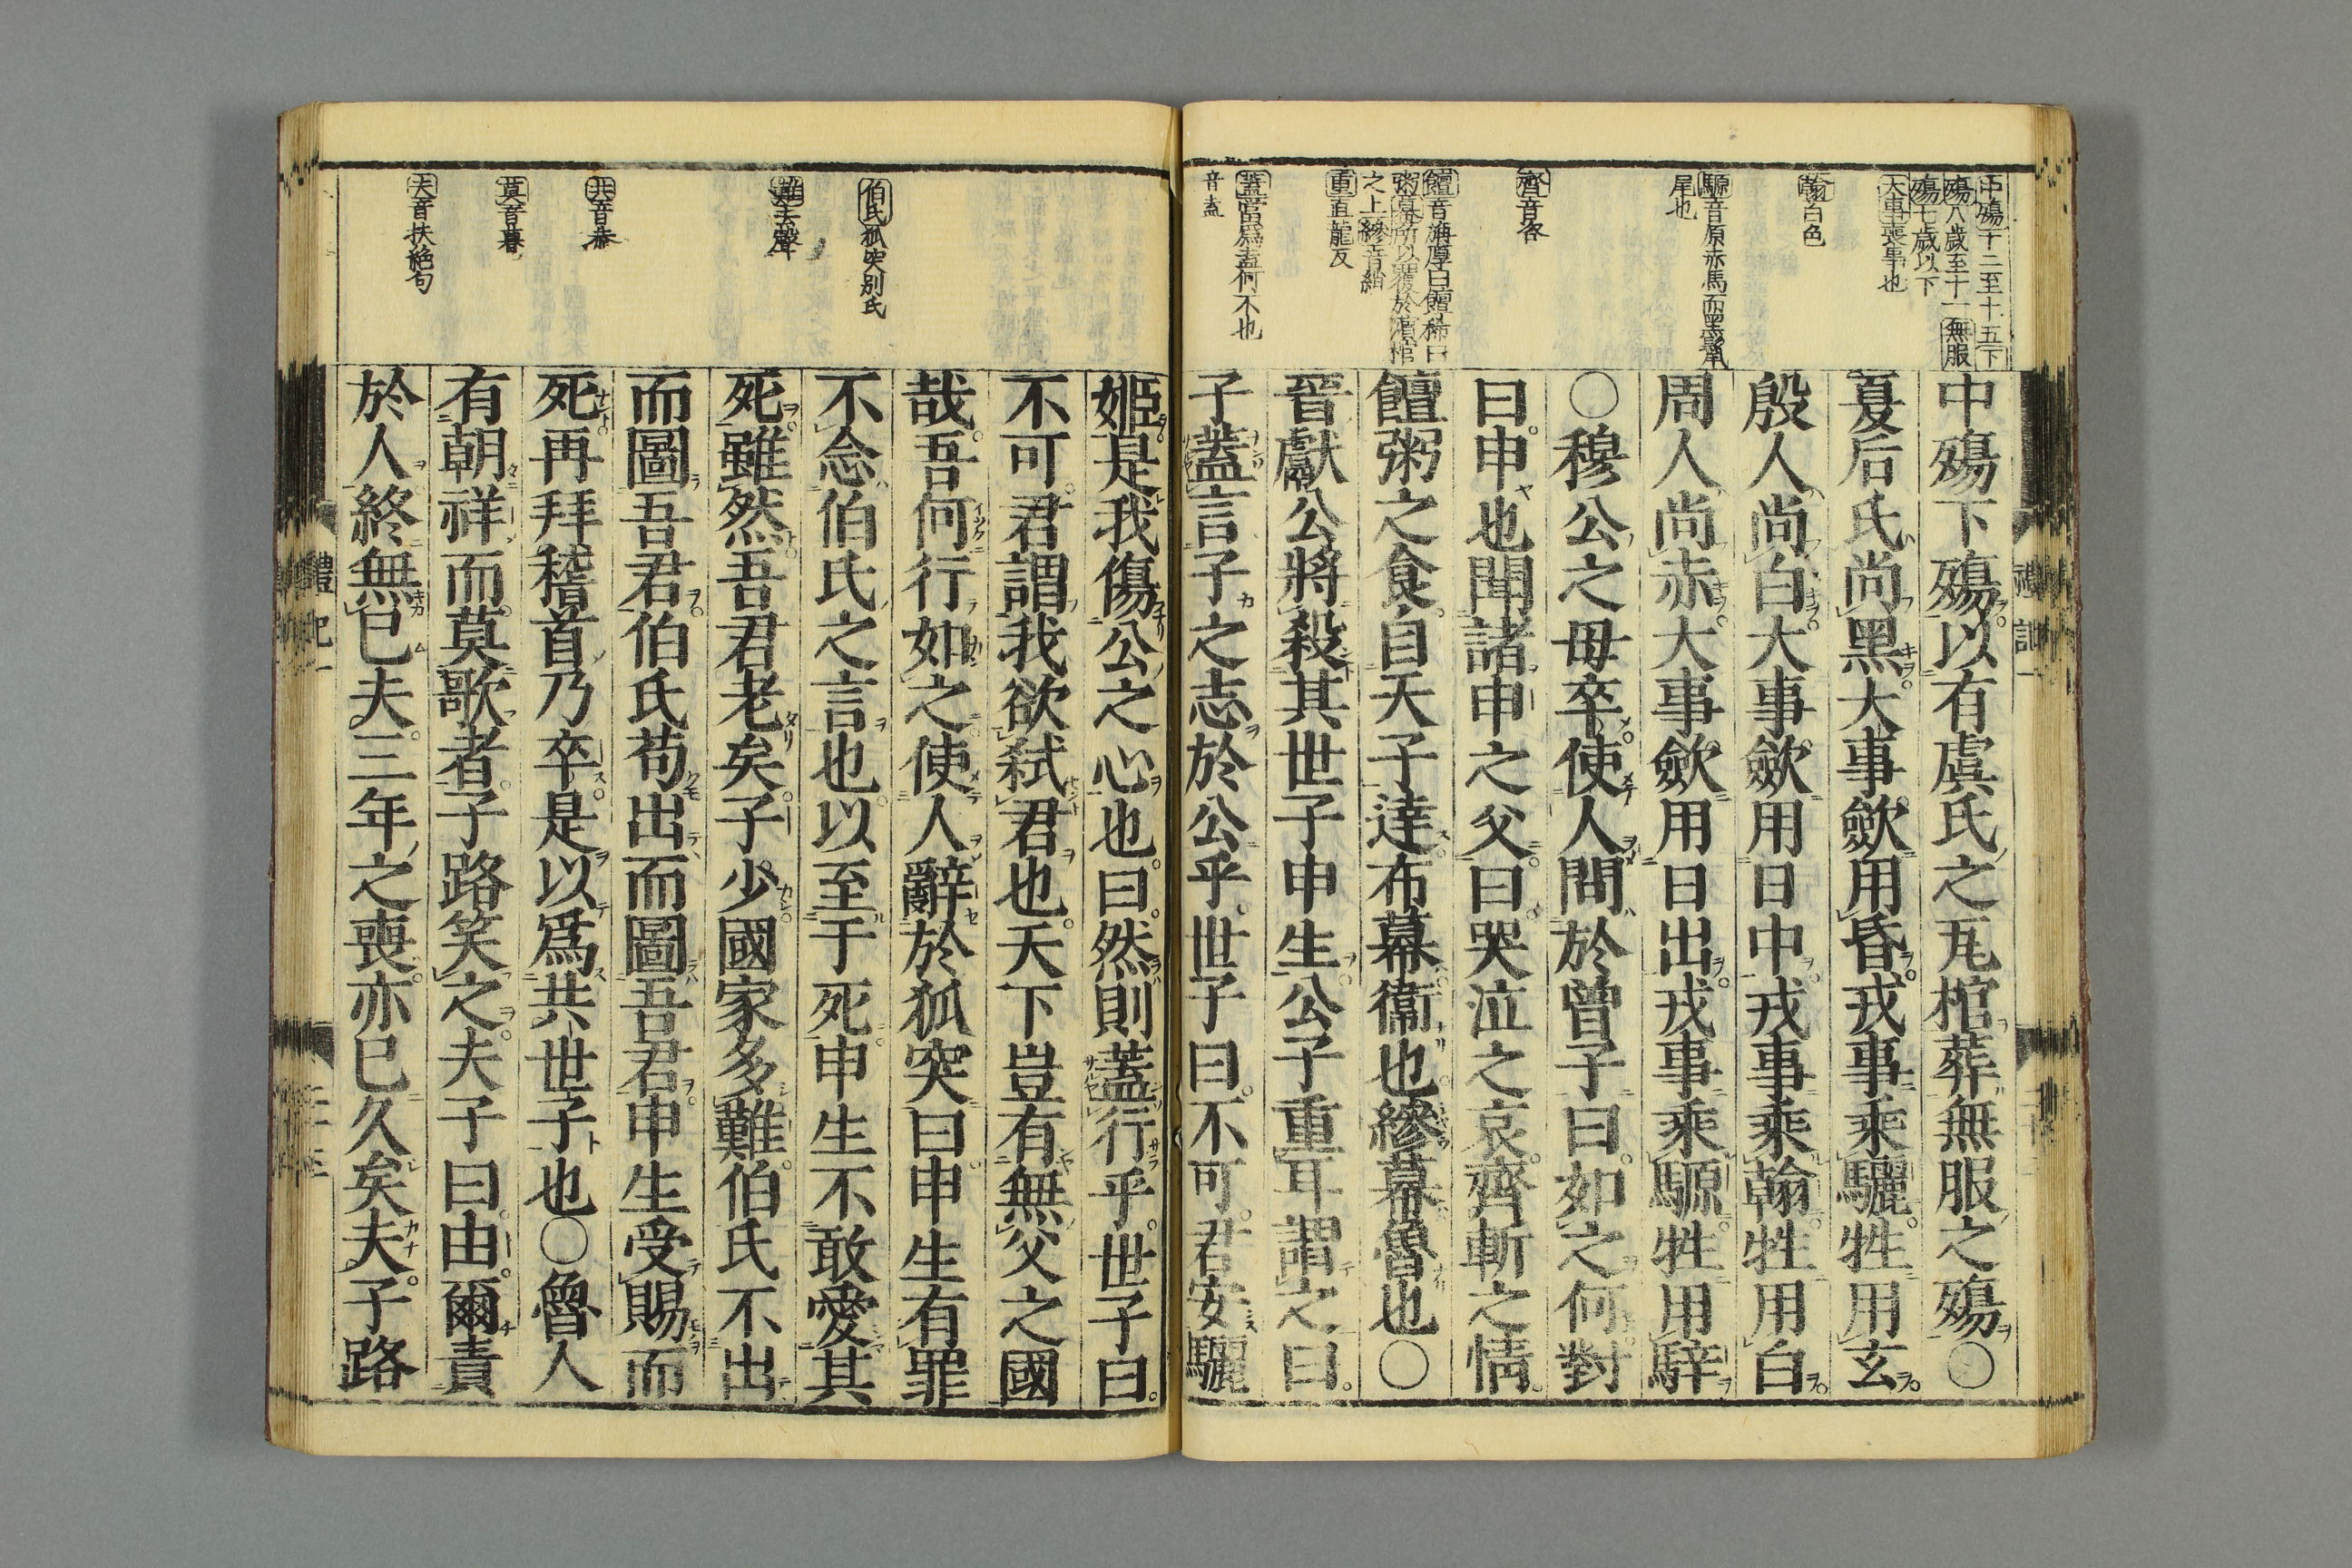 中殤十二至十五下
殤八歲至十一無服
殤七歲以下
大事喪事也
翰白色
騵音原赤馬而黑鬣
尾也
齊音咨
饘音旃厚曰饘稀曰
粥幕所以覆於殯棺
之上縿音綃
重直龍反
蓋當爲盍何不也
音盍
中殤下殤以有虞氏之瓦棺葬無服之殤○
夏后氏尚黑大事歛用昏戎事乘驪牲用玄
殷人尚白大事歛用日中戎事乘翰牲用白
周人尚赤大事歛用日出戎事乘騵牲用騂
○穆公之母卒使人問於曾子曰如之何對
曰申也聞諸申之父曰哭泣之哀齊斬之情
饘粥之食自天子達布幕衞也縿幕魯也○
晉獻公將殺其世子申生公子重耳謂之曰
子蓋言子之志於公乎世子曰不可君安驪
伯氏狐突別氏
難去聲
共音恭
莫音暮
夫音扶絶句
姬是我傷公之心也曰然則蓋行乎世子曰
不可君謂我欲弑君也天下豈有無父之國
哉吾何行如之使人辭於狐突曰申生有罪
不念伯氏之言也以至于死申生不敢愛其
死雖然吾君老矣子少國家多難伯氏不出
而圖吾君伯氏苟出而圖吾君申生受賜而
死再拜稽首乃卒是以爲共世子也○魯人
有朝祥而莫歌者子路笑之夫子曰由爾責
於人終無已夫三年之喪亦已久矣夫子路
禮記一